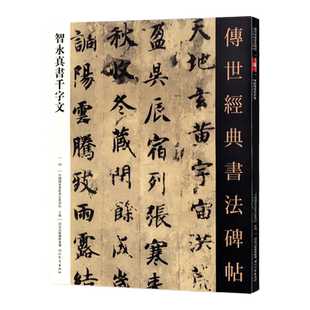 傳世經典書法碑帖
天地玄黃宇宙洪
盈昃辰宿列張寒来
秋收冬藏閏餘成
調陽雲騰致雨露結
智永真書千字文